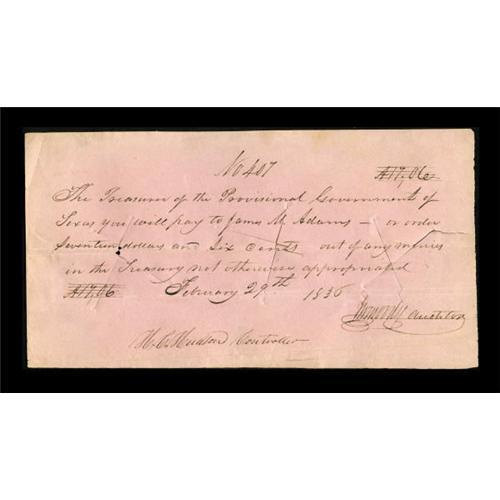 No 407
$17,06
The Treasurer of the Provisional Government of
Texas, you will pay to James M Adams — or order
Seventeen dollars and Six Cents out of any monies
in the Treasury not otherwise appropriated
$17,06 February 29th 1836
Auditor
H. C. Hudson Controller